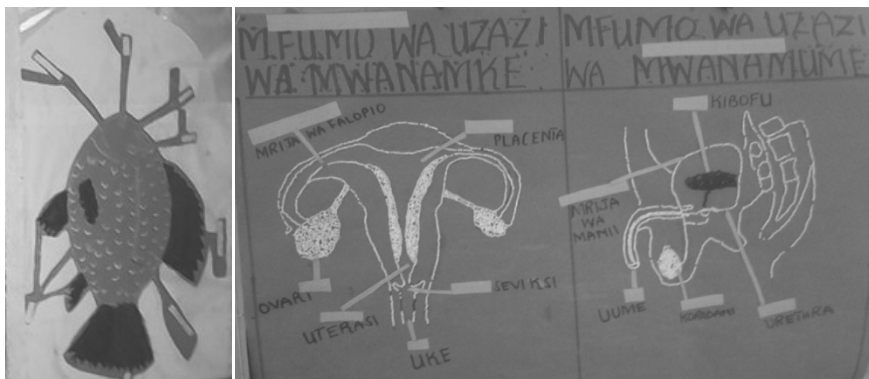 MFUMO WA UZAZI
WA MWANAMKE
MRIJA WA FALOPIO
PLACENTA
OVARI
UTERASI
SEVIKSI
UKE
MFUMO WA UZAZI
WA MWANAMUME
KIBOFU
MRIJA
WA
MANII
UUME
KORODANI
URETHRA